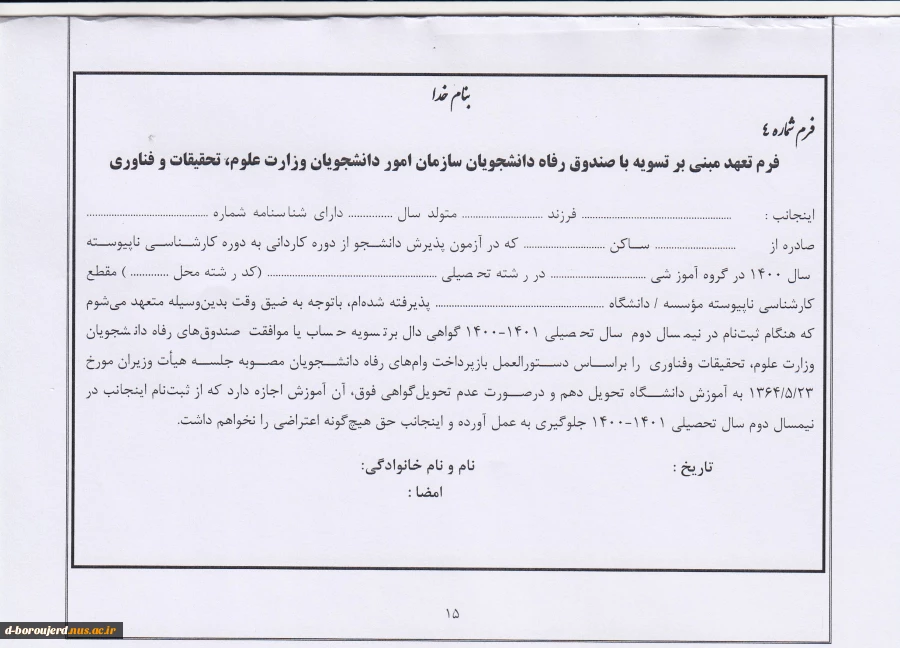 بنام خدا
فرم شماره ٤
فرم تعهد مبنی بر تسویه با صندوق رفاه دانشجویان سازمان امور دانشجویان وزارت علوم، تحقیقات و فناوری
اینجانب : ........................ فرزند ........................ متولد سال ............ دارای شناسنامه شماره ........................
صادره از ........................ ساکن ........................ که در آزمون پذیرش دانشجو از دوره کاردانی به دوره کارشناسی ناپیوسته
سال ۱۴۰۰ در گروه آموزشی ........................ در رشته تحصیلی ........................ (کد رشته محل ............ ) مقطع
کارشناسی ناپیوسته مؤسسه / دانشگاه ........................ پذیرفته شده‌ام، باتوجه به ضیق وقت بدین‌وسیله متعهد می‌شوم
که هنگام ثبت‌نام در نیمسال دوم سال تحصیلی ۱۴۰۱-۱۴۰۰ گواهی دال بر تسویه حساب یا موافقت صندوق‌های رفاه دانشجویان
وزارت علوم، تحقیقات وفناوری را براساس دستورالعمل بازپرداخت وام‌های رفاه دانشجویان مصوبه جلسه هیأت وزیران مورخ
۱۳۶۴/۵/۲۳ به آموزش دانشگاه تحویل دهم و درصورت عدم تحویل‌گواهی فوق، آن آموزش اجازه دارد که از ثبت‌نام اینجانب در
نیمسال دوم سال تحصیلی ۱۴۰۱-۱۴۰۰ جلوگیری به عمل آورده و اینجانب حق هیچ‌گونه اعتراضی را نخواهم داشت.
تاریخ : نام و نام خانوادگی:
امضا :
۱۵
d-boroujerd.nus.ac.ir